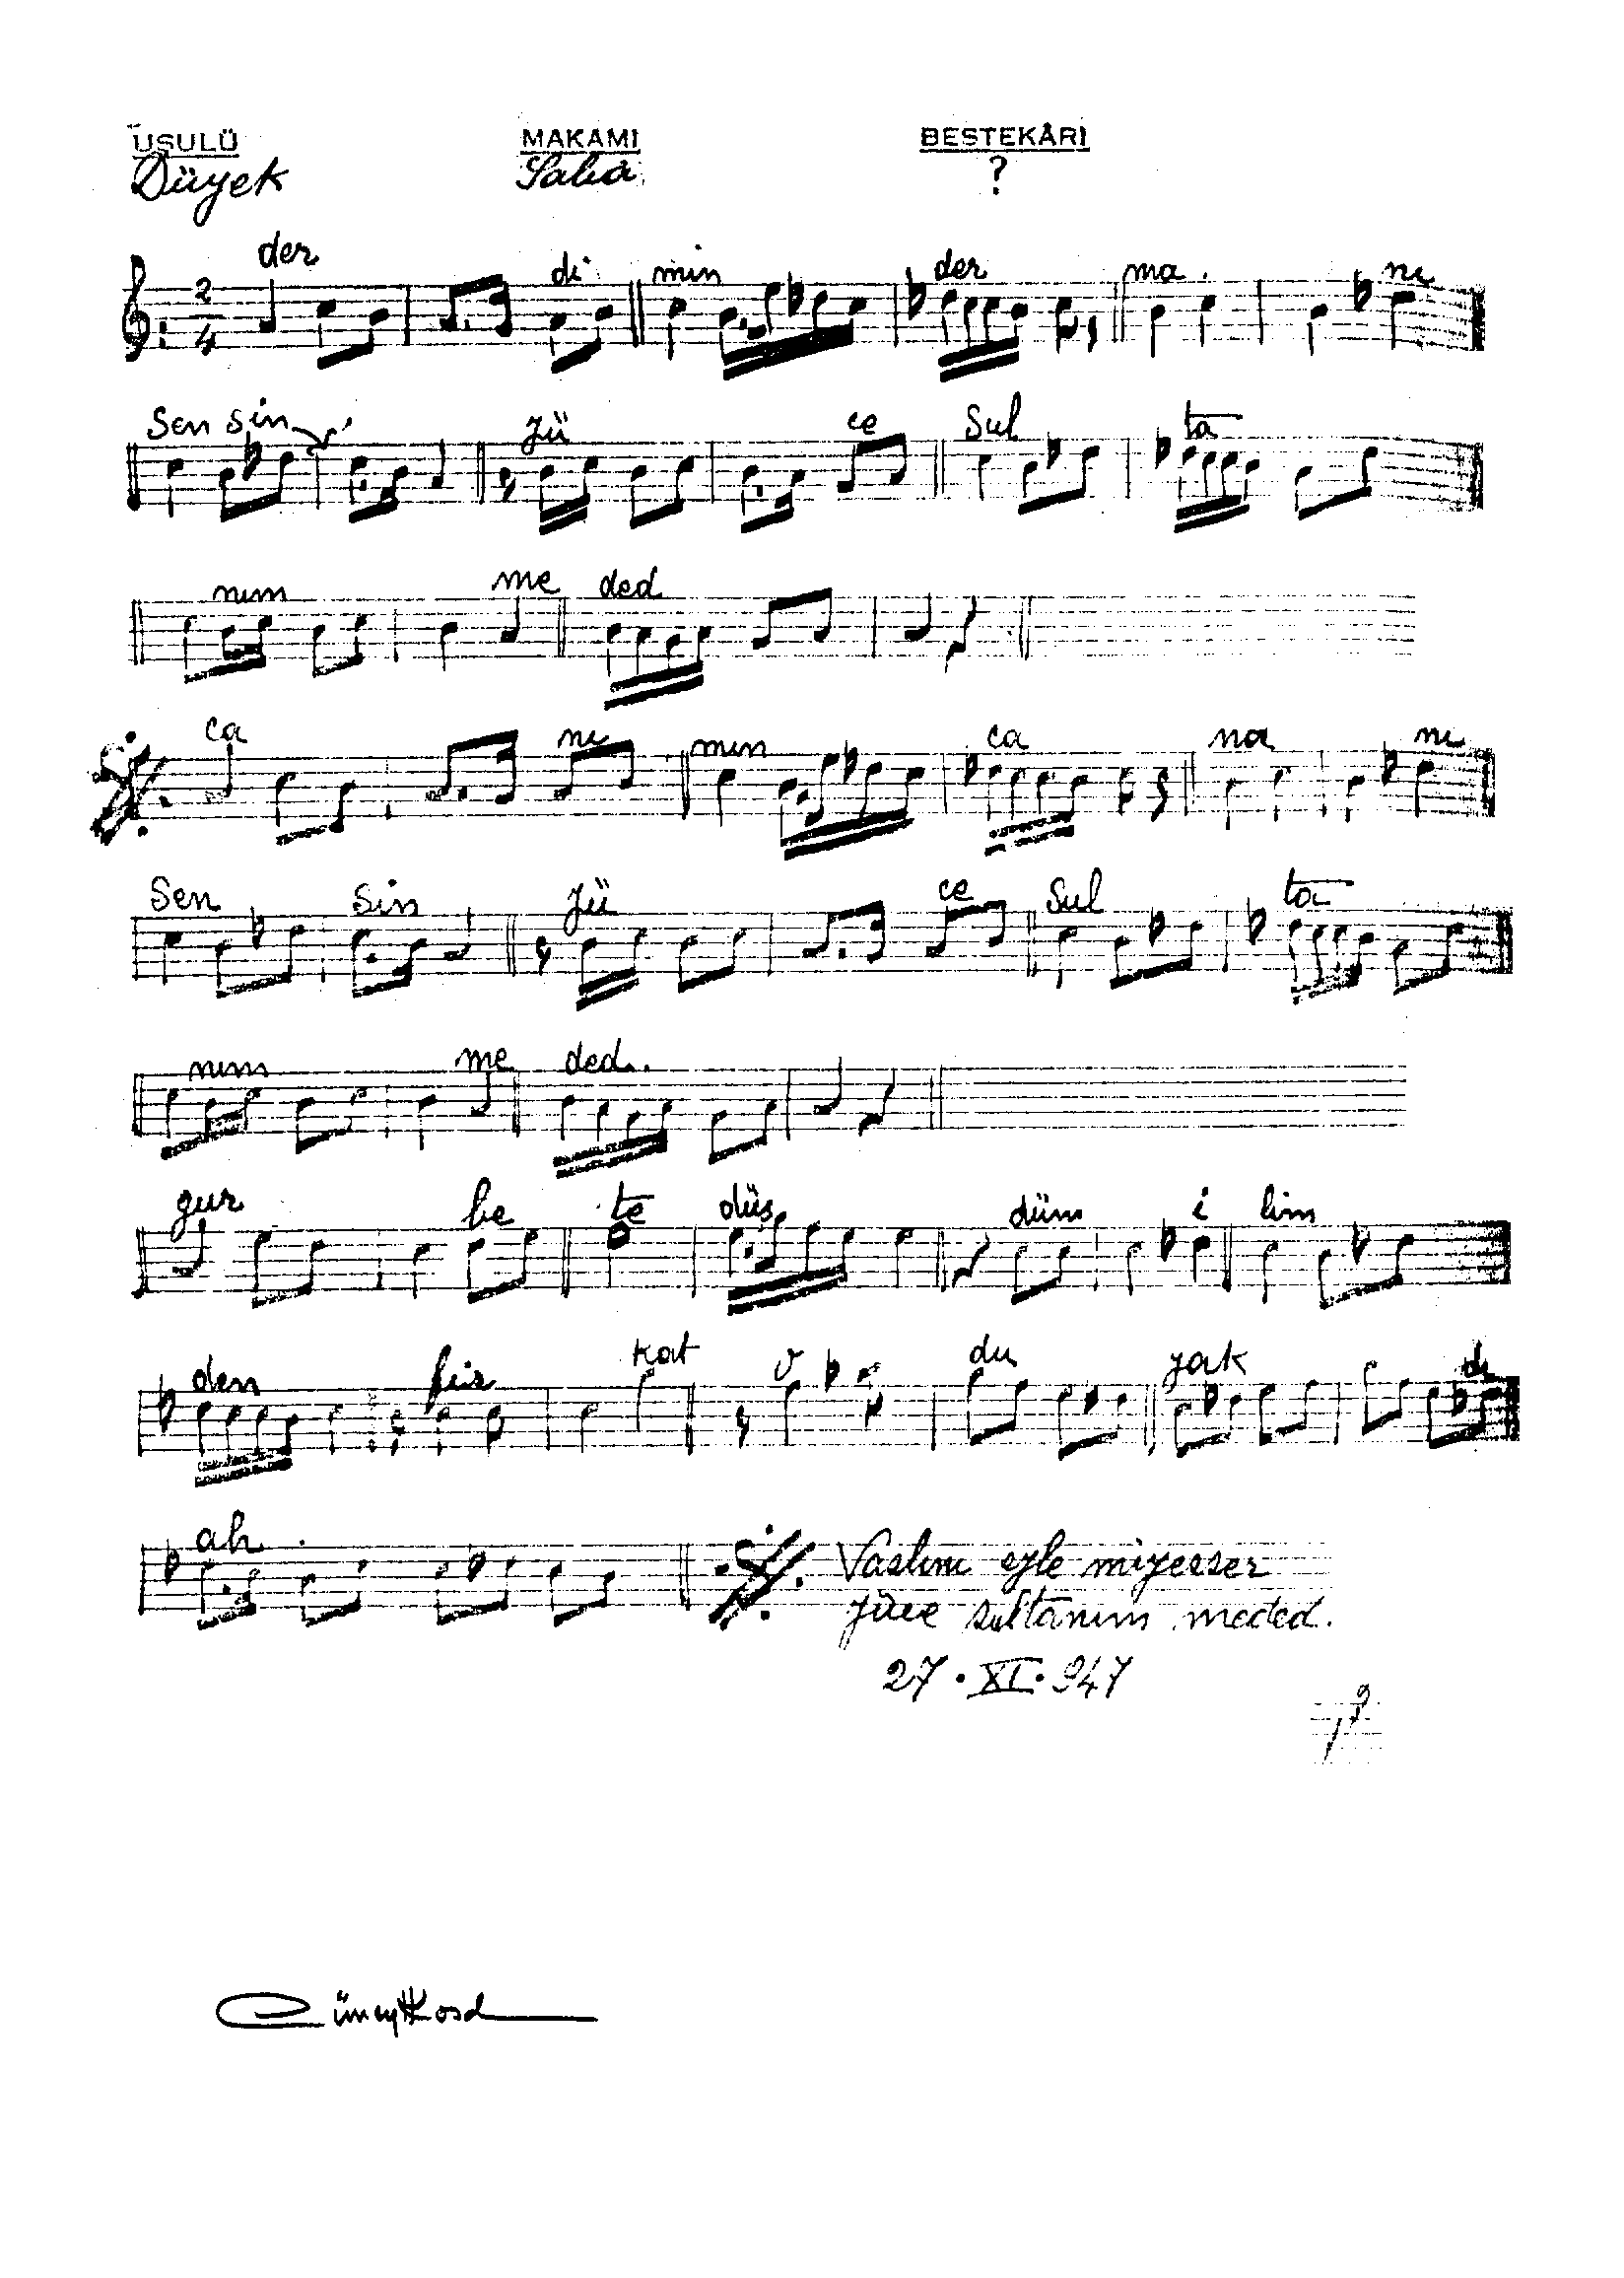 USULÜ MAKAMI BESTEKÂRI
Düyek Saba ?
der di min der ma ni
2
4
Sen sin yü ce Sul ta
nım me ded
ca nı mın ca na nı
Sen sin yü ce Sul ta
nım me ded
gur be te düş düm i lim
den fir kat o du yak dı
ah
Vaslını eyle miyesser
yüce sultanım meded.
27 · XI · 947